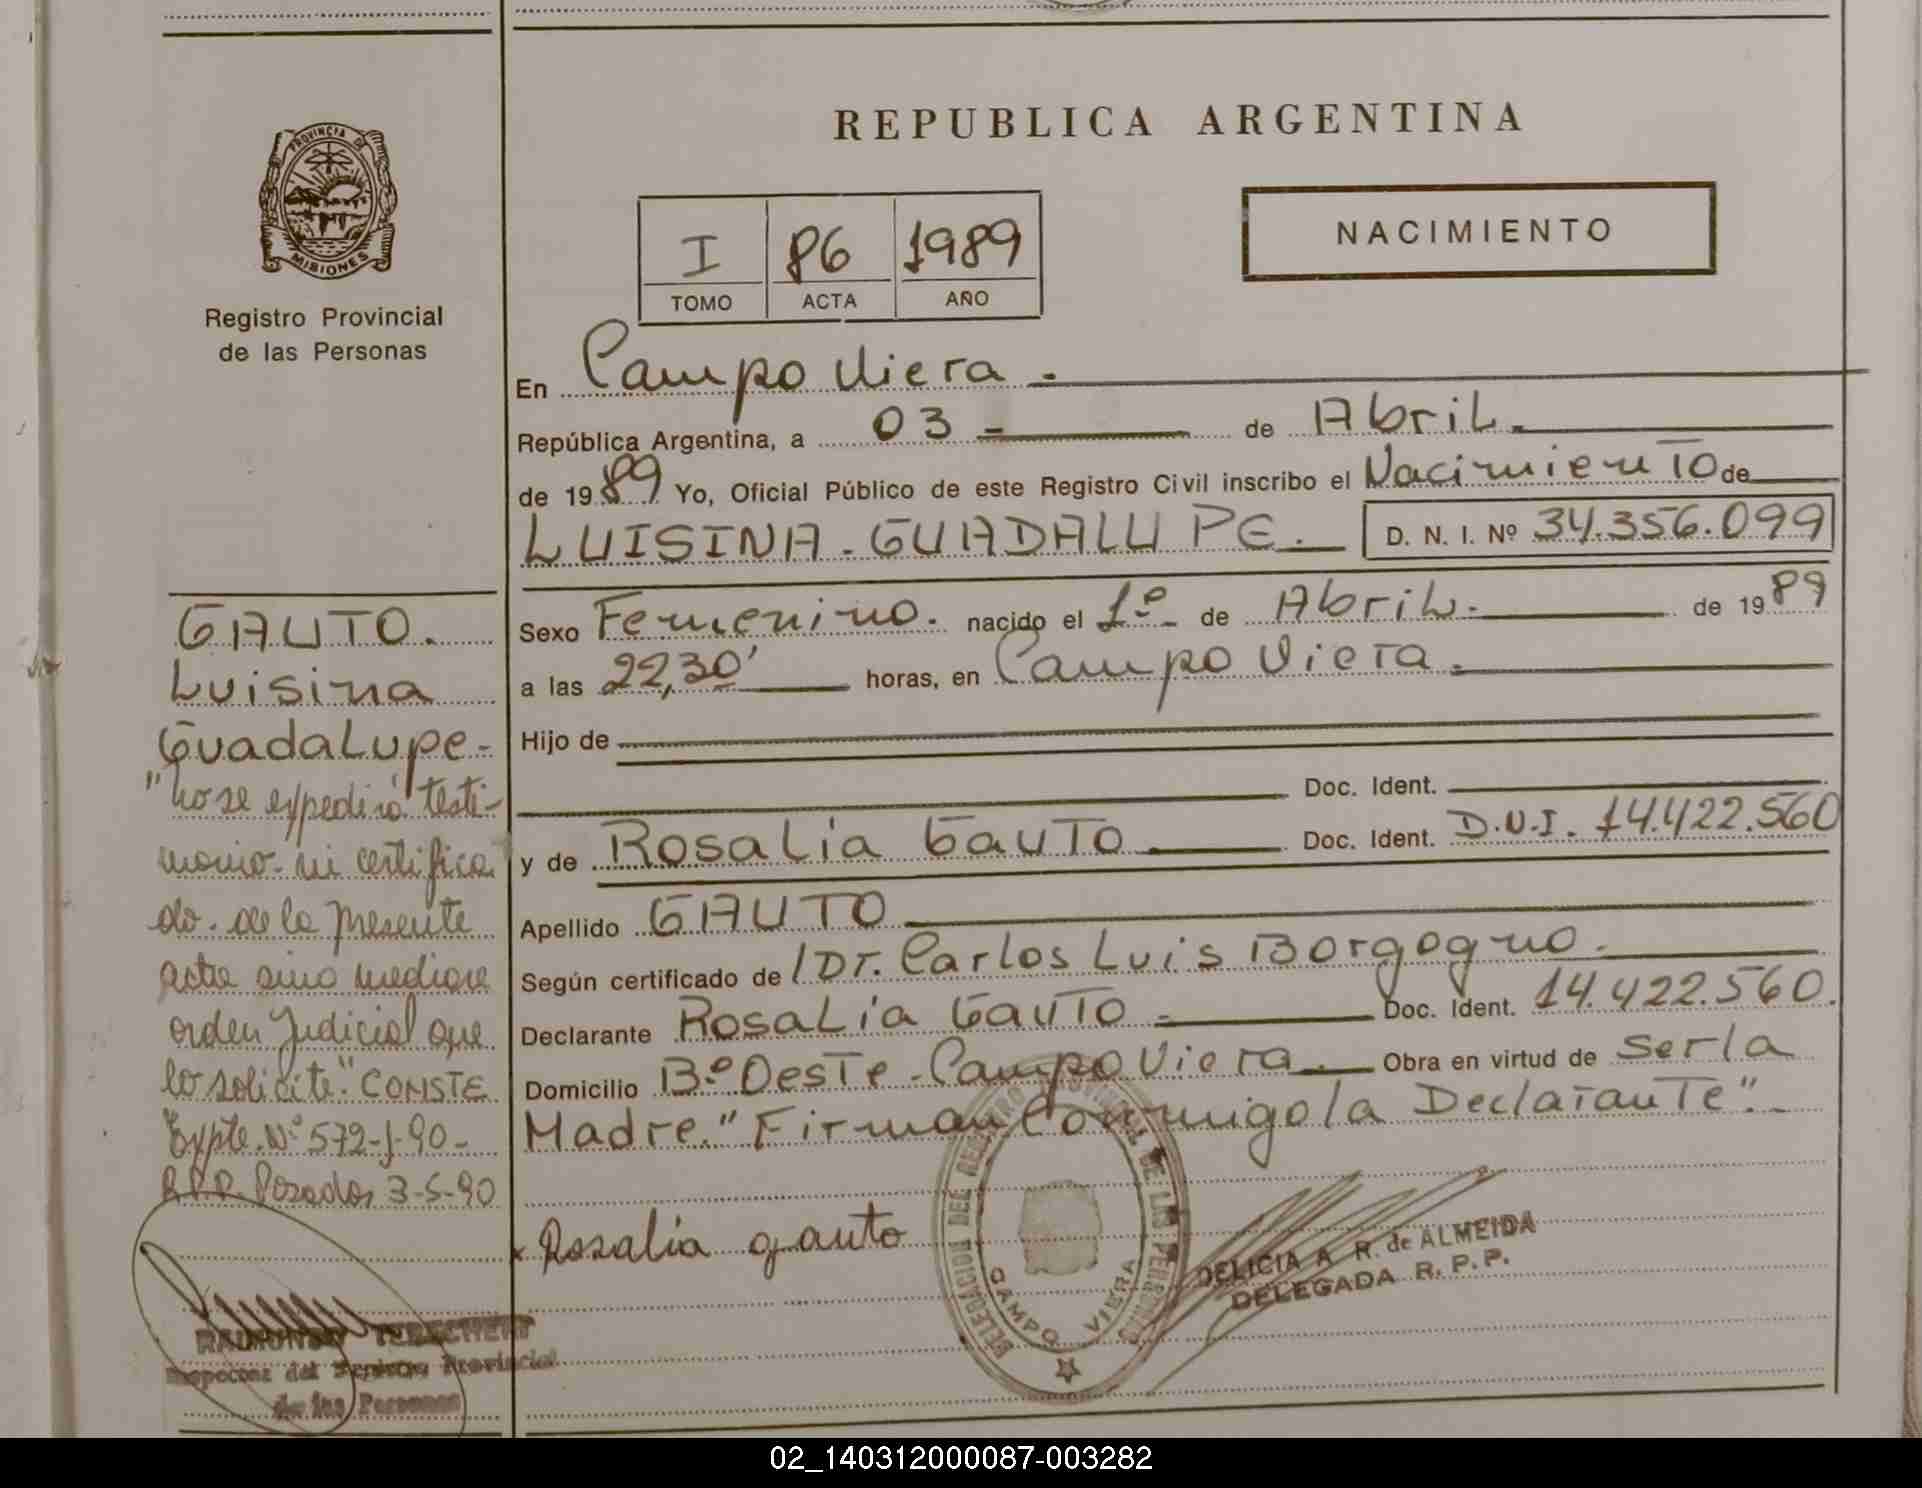 REPUBLICA ARGENTINA
PROVINCIA DE
MISIONES
Registro Provincial
de las Personas
I 86 1989
TOMO ACTA AÑO
NACIMIENTO
En Campo Viera.-
República Argentina, a 03 - de Abril.
de 1989 Yo, Oficial Público de este Registro Civil inscribo el Nacimiento de
LUISINA-GUADALUPE. D. N. I. Nº 34.356.099
Sexo Femenino. nacido el 1º- de Abril.- de 1989
a las 22,30' horas, en Campo Viera.
Hijo de
Doc. Ident.
y de Rosalia Gauto Doc. Ident. D.N.I. 14.422.560
Apellido GAUTO
Según certificado de Dr. Carlos Luis Borgogno.
Declarante Rosalia Gauto - Doc. Ident. 14.422.560.
Domicilio Bº Oeste-Campo Viera. Obra en virtud de ser la
Madre." Firman Conmigo la Declarante".-
x Rosalia gauto
DELEGACION DEL REGISTRO PROVINCIAL DE LAS PERSONAS
CAMPO VIERA
DELICIA A R. de ALMEIDA
DELEGADA R. P. P.
GAUTO.
Luisina
Guadalupe.-
"no se expedirá testi-
monio- ni certifica
do. de la presente
acta sino mediare
orden Judicial que
lo solicite". CONSTE
Expte. Nº 572-J-90-
R.P.P. Posadas 3-5-90
Registro Provincial
de las Personas
02_140312000087-003282